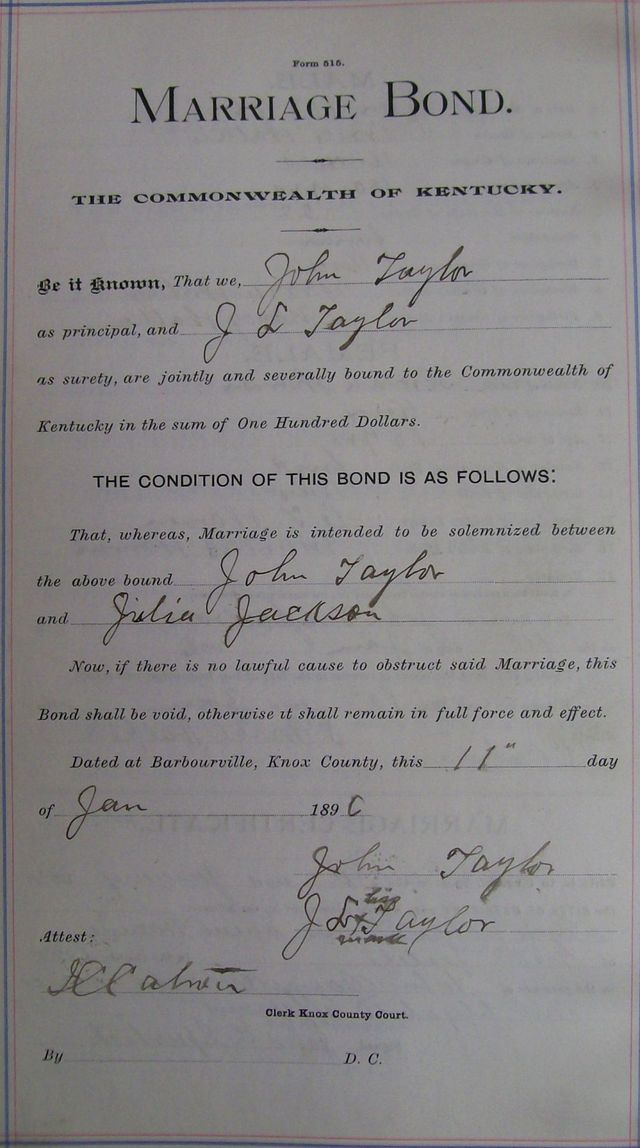 Form 515.
MARRIAGE BOND.
THE COMMONWEALTH OF KENTUCKY.
Be it Known, That we, John Taylor
as principal, and J L Taylor
as surety, are jointly and severally bound to the Commonwealth of
Kentucky in the sum of One Hundred Dollars.
THE CONDITION OF THIS BOND IS AS FOLLOWS:
That, whereas, Marriage is intended to be solemnized between
the above bound John Taylor
and Julia Jackson
Now, if there is no lawful cause to obstruct said Marriage, this
Bond shall be void, otherwise it shall remain in full force and effect.
Dated at Barbourville, Knox County, this 11" day
of Jan 1890
John Taylor
his
J L x Taylor
mark
Attest:
Clerk Knox County Court.
By D. C.